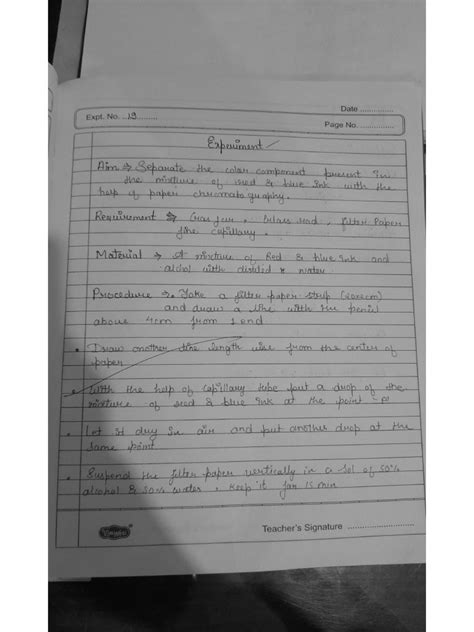 Date ..............
Expt. No. ..19.........
Page No. ..............
Experiment
Aim → Separate the color component present in
the mixture of red & blue ink with the
help of paper chromatography.
Requirement → Gas jar, rod, filter Paper
fine capillary.
Material → A mixture of Red & blue ink and
with & water
Procedure → Take a filter paper strip
and draw a line with the pencil
above 4cm from 1 end
• Draw another line length wise from the center of
paper
• With the help of capillary tube put a drop of the
mixture of red & blue ink at the point
• Let it dry in air and put another drop at the
same point.
• Suspend the filter paper vertically in a sol of 50%
alcohol & 50% water, keep it for 15 min
Teacher's Signature ..................